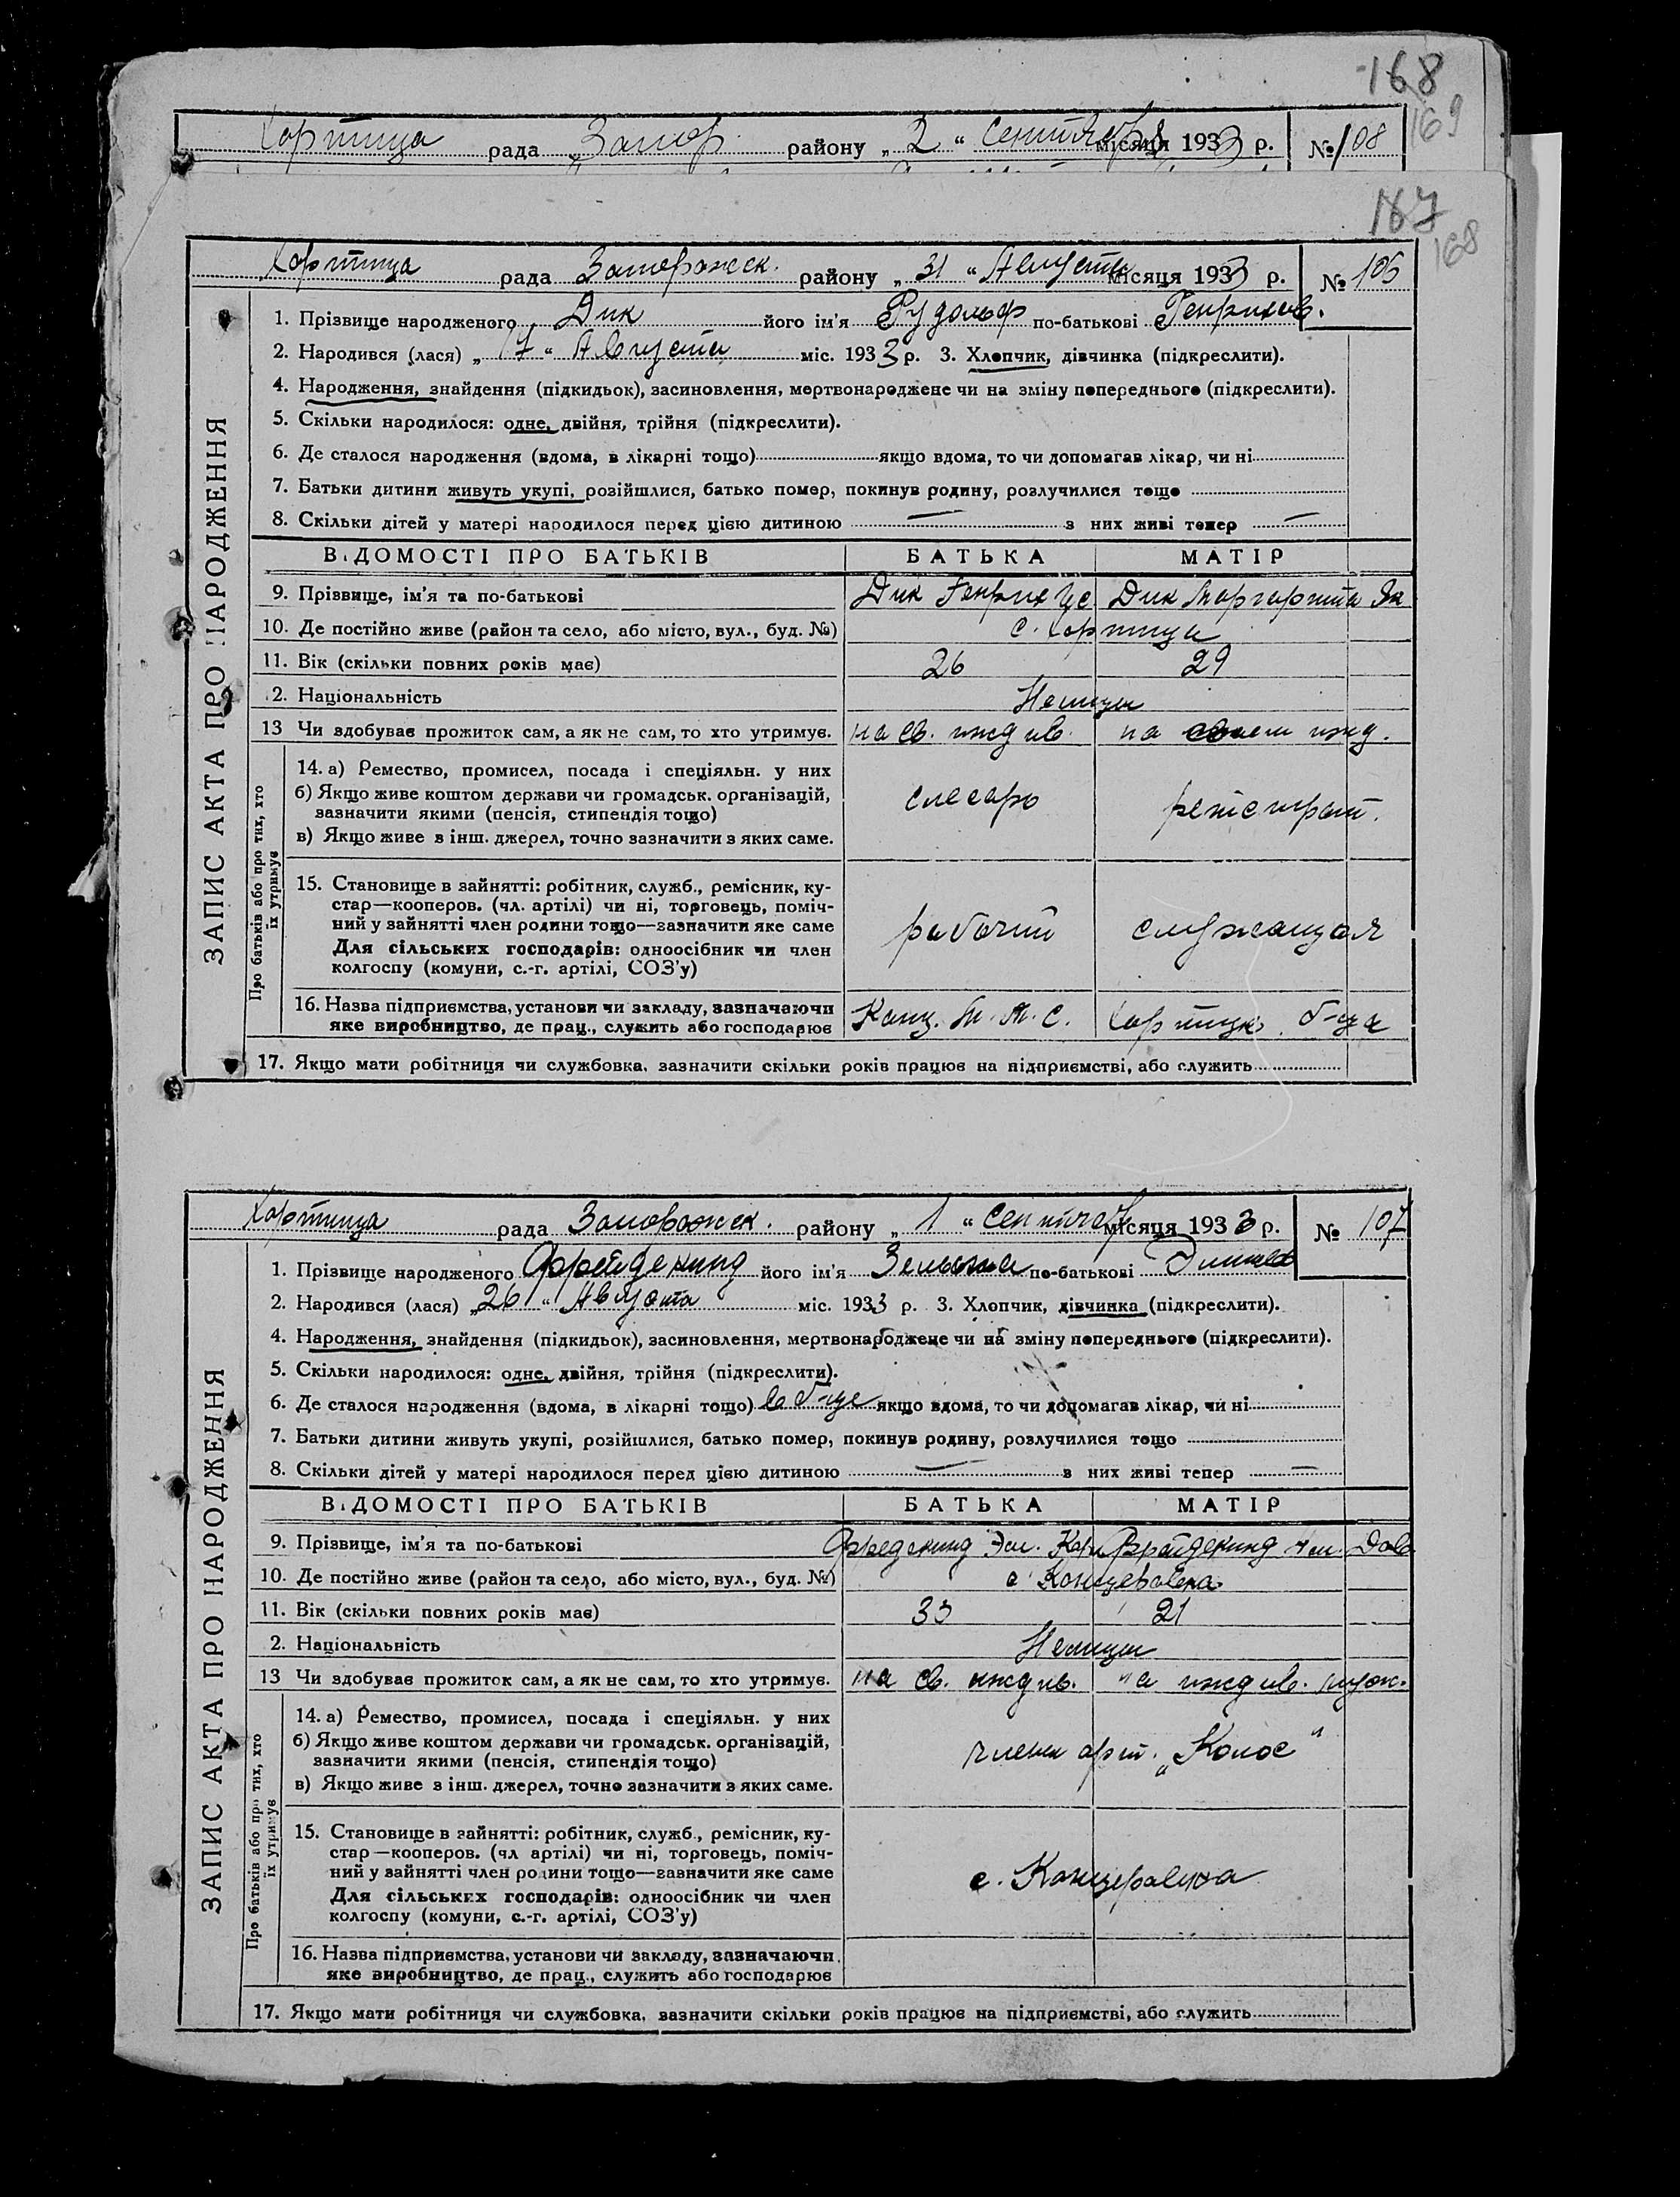 168
169
Хортица рада „Запор. району „ 2 “ Сентября місяця 1933 р. № 108
167
168
Хортица рада Запорожск. району „ 31 “ Августа місяця 1933 р. № 106
ЗАПИС АКТА ПРО НАРОДЖЕННЯ
1. Прізвище народженого Дик його ім'я Рудольф по-батькові Генрихов.
2. Народився (лася) „ 17 “ Августа міс. 1933 р. 3. Хлопчик, дівчинка (підкреслити).
4. Народження, знайдення (підкидьок), засиновлення, мертвонароджене чи на зміну попереднього (підкреслити).
5. Скільки народилося: одне, двійня, трійня (підкреслити).
6. Де сталося народження (вдома, в лікарні тощо) якщо вдома, то чи допомагав лікар, чи ні
7. Батьки дитини живуть укупі, розійшлися, батько помер, покинув родину, розлучилися тощо
8. Скільки дітей у матері народилося перед цією дитиною — з них живі тепер —
ВІДОМОСТІ ПРО БАТЬКІВ БАТЬКА МАТІР
9. Прізвище, ім'я та по-батькові Дик Генрих Дик Маргарита Як
10. Де постійно живе (район та село, або місто, вул., буд. №) с. Хортица
11. Вік (скільки повних років має) 26 29
2. Національність Немцы
13 Чи здобуває прожиток сам, а як не сам, то хто утримує. на св. иждив. на своем ижд.
Про батьків або про тих, хто їх утримує
14. а) Ремество, промисел, посада і спеціяльн. у них
б) Якщо живе коштом держави чи громадськ. організацій,
зазначити якими (пенсія, стипендія тощо) слесарь регистрат.
в) Якщо живе з інш. джерел, точно зазначити з яких саме.
15. Становище в зайнятті: робітник, служб., ремісник, ку-
стар—кооперов. (чл. артілі) чи ні, торговець, поміч-
ний у зайнятті член родини тощо—зазначити яке саме рабочий служащая
Для сільських господарів: одноосібник чи член
колгоспу (комуни, с.-г. артілі, СОЗ'у)
16. Назва підприємства, установи чи закладу, зазначаючи Канц. М. Т. С. Хортицк. б-ца
яке виробництво, де прац., служить або господарює
17. Якщо мати робітниця чи службовка, зазначити скільки років працює на підприємстві, або служить
Хортица рада Запорожск. району „ 1 “ Сентября місяця 1933 р. № 107
ЗАПИС АКТА ПРО НАРОДЖЕННЯ
1. Прізвище народженого Фрейдекинд його ім'я Зельма по-батькові
2. Народився (лася) „ 26 “ Августа міс. 1933 р. 3. Хлопчик, дівчинка (підкреслити).
4. Народження, знайдення (підкидьок), засиновлення, мертвонароджене чи на зміну попереднього (підкреслити).
5. Скільки народилося: одне, двійня, трійня (підкреслити).
6. Де сталося народження (вдома, в лікарні тощо) в б-це якщо вдома, то чи допомагав лікар, чи ні
7. Батьки дитини живуть укупі, розійшлися, батько помер, покинув родину, розлучилися тощо
8. Скільки дітей у матері народилося перед цією дитиною — з них живі тепер —
ВІДОМОСТІ ПРО БАТЬКІВ БАТЬКА МАТІР
9. Прізвище, ім'я та по-батькові Фредекинд Эм. Фрейдекинд Дав
10. Де постійно живе (район та село, або місто, вул., буд. №) с. Канцеровка
11. Вік (скільки повних років має) 33 21
2. Національність Немцы
13 Чи здобуває прожиток сам, а як не сам, то хто утримує. на св. иждив. на иждив. муж.
Про батьків або про тих, хто їх утримує
14. а) Ремество, промисел, посада і спеціяльн. у них
б) Якщо живе коштом держави чи громадськ. організацій,
зазначити якими (пенсія, стипендія тощо) члены арт. „Колос“
в) Якщо живе з інш. джерел, точно зазначити з яких саме.
15. Становище в зайнятті: робітник, служб., ремісник, ку-
стар—кооперов. (чл артілі) чи ні, торговець, поміч-
ний у зайнятті член родини тощо—зазначити яке саме с. Канцеровка
Для сільських господарів: одноосібник чи член
колгоспу (комуни, с.-г. артілі, СОЗ'у)
16. Назва підприємства, установи чи закладу, зазначаючи
яке виробництво, де прац., служить або господарює
17. Якщо мати робітниця чи службовка, зазначити скільки років працює на підприємстві, або служить